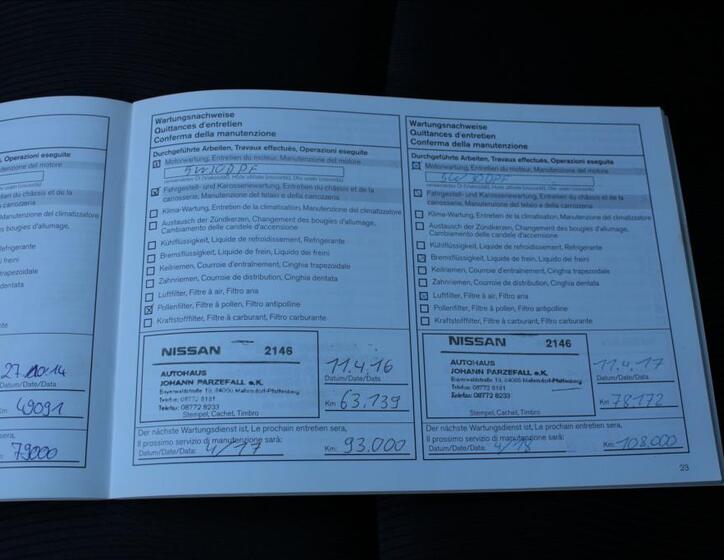 , Operazioni eseguite
nutenzione del motore
et de la
carrozzeria
Manutenzione del climatizzatore
d'allumage,
efrigerante
freni
apezoidale
dentata
nte
27.10.14
Datum/Date/Data
Km 49091
sera,
79000
Wartungsnachweise
Quittances d'entretien
Conferma della manutenzione
Durchgeführte Arbeiten, Travaux effectués, Operazioni eseguite
Motorwartung, Entretien du moteur, Manutenzione del motore
Fahrgestell- und Karosseriewartung, Entretien du châssis et de la
carrosserie, Manutenzione del telaio e della carrozzeria
Klima-Wartung, Entretien de la climatisation, Manutenzione del climatizzatore
Austausch der Zündkerzen, Changement des bougies d'allumage,
Cambiamento delle candele d'accensione
Kühlflüssigkeit, Liquide de refroidissement, Refrigerante
Bremsflüssigkeit, Liquide de frein, Liquido dei freini
Keilriemen, Courroie d'entraînement, Cinghia trapezoidale
Zahnriemen, Courroie de distribution, Cinghia dentata
Luftfilter, Filtre à air, Filtro aria
Pollenfilter, Filtre à pollen, Filtro antipolline
Kraftstofffilter, Filtre à carburant, Filtro carburante
NISSAN 2146
AUTOHAUS
JOHANN PARZEFALL e.K.
Telefon: 08772 8181
Telefax: 08772 8233
Stempel, Cachet, Timbro
11.4.16
Datum/Date/Data
Km 63.139
Der nächste Wartungsdienst ist, Le prochain entretien sera,
Il prossimo servizio di manutenzione sarà:
Datum/Date/Data: 4/17 Km: 93.000
Wartungsnachweise
Quittances d'entretien
Conferma della manutenzione
Durchgeführte Arbeiten, Travaux effectués, Operazioni eseguite
Motorwartung, Entretien du moteur, Manutenzione del motore
5W30DPF
Fahrgestell- und Karosseriewartung, Entretien du châssis et de la
carrosserie, Manutenzione del telaio e della carrozzeria
Klima-Wartung, Entretien de la climatisation, Manutenzione del climatizzatore
Austausch der Zündkerzen, Changement des bougies d'allumage,
Cambiamento delle candele d'accensione
Kühlflüssigkeit, Liquide de refroidissement, Refrigerante
Bremsflüssigkeit, Liquide de frein, Liquido dei freini
Keilriemen, Courroie d'entraînement, Cinghia trapezoidale
Zahnriemen, Courroie de distribution, Cinghia dentata
Luftfilter, Filtre à air, Filtro aria
Pollenfilter, Filtre à pollen, Filtro antipolline
Kraftstofffilter, Filtre à carburant, Filtro carburante
NISSAN 2146
AUTOHAUS
JOHANN PARZEFALL e.K.
Telefon: 08772 8181
Telefax: 08772 8233
Stempel, Cachet, Timbro
11.4.17
Datum/Date/Data
Km 78172
Der nächste Wartungsdienst ist, Le prochain entretien sera,
Il prossimo servizio di manutenzione sarà:
Datum/Date/Data: 4/18 Km: 108.000
23